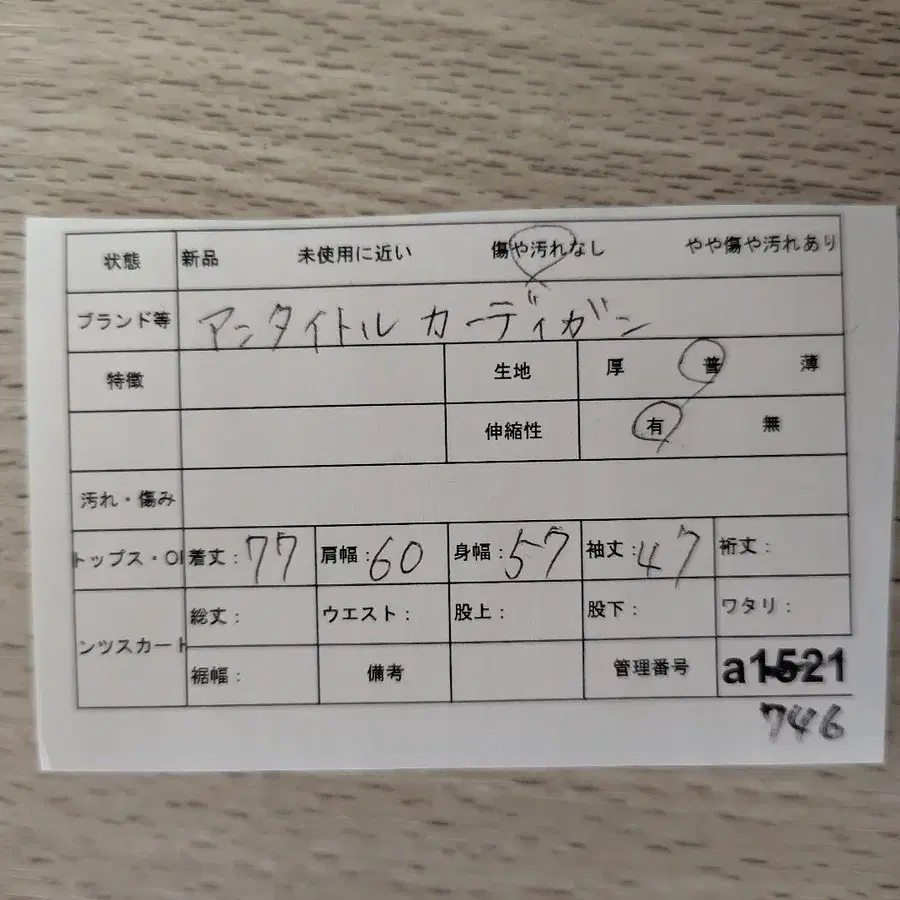 状態 新品 未使用に近い 傷や汚れなし やや傷や汚れあり
ブランド等 アンタイトル カーディガン
特徴 生地 厚 普 薄
伸縮性 有 無
汚れ・傷み
トップス・OP 着丈：77 肩幅：60 身幅：57 袖丈：47 裄丈：
ンツスカート 総丈： ウエスト： 股上： 股下： ワタリ：
裾幅： 備考 管理番号 a1521
746